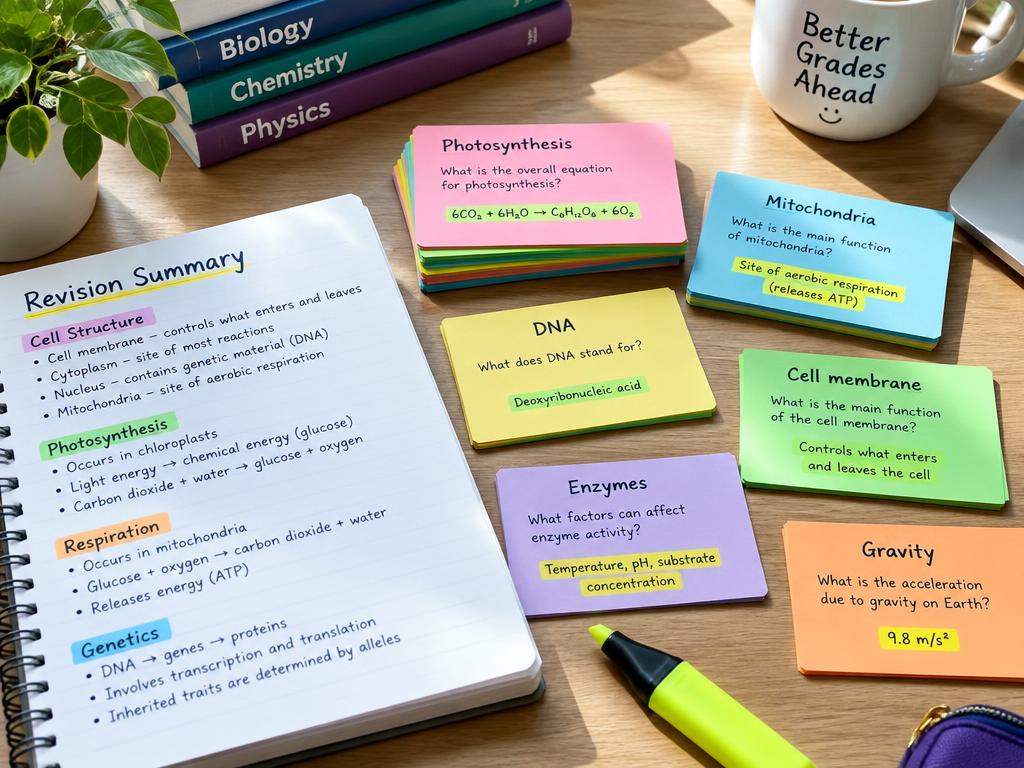 Biology
Chemistry
Physics
Better
Grades
Ahead
Revision Summary
Cell Structure
• Cell membrane – controls what enters and leaves
• Cytoplasm – site of most reactions
• Nucleus – contains genetic material (DNA)
• Mitochondria – site of aerobic respiration
Photosynthesis
• Occurs in chloroplasts
• Light energy → chemical energy (glucose)
• Carbon dioxide + water → glucose + oxygen
Respiration
• Occurs in mitochondria
• Glucose + oxygen → carbon dioxide + water
• Releases energy (ATP)
Genetics
• DNA → genes → proteins
• Involves transcription and translation
• Inherited traits are determined by alleles
Photosynthesis
What is the overall equation
for photosynthesis?
6CO₂ + 6H₂O → C₆H₁₂O₆ + 6O₂
Mitochondria
What is the main function
of mitochondria?
Site of aerobic respiration
(releases ATP)
DNA
What does DNA stand for?
Deoxyribonucleic acid
Cell membrane
What is the main function
of the cell membrane?
Controls what enters
and leaves the cell
Enzymes
What factors can affect
enzyme activity?
Temperature, pH, substrate
concentration
Gravity
What is the acceleration
due to gravity on Earth?
9.8 m/s²